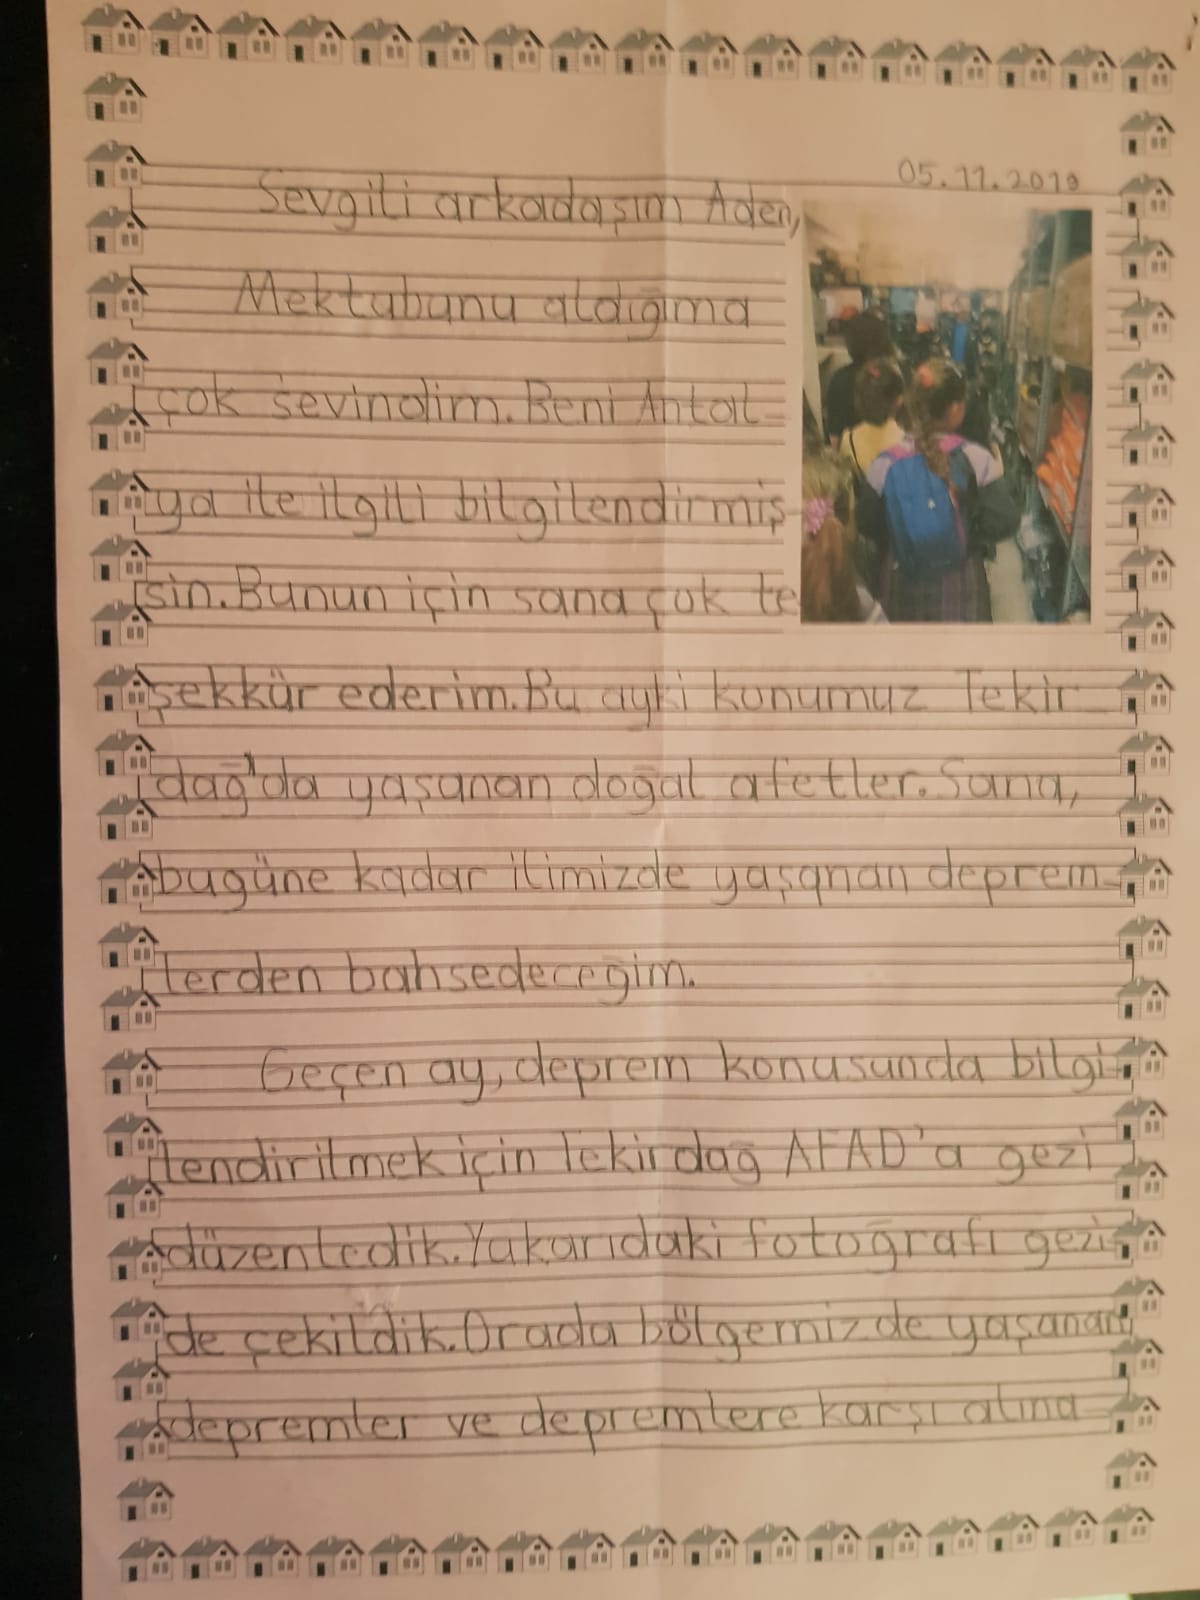 05.11.2019
Sevgili arkadaşım Aden,
Mektubunu aldığıma
çok sevindim. Beni Antal
ya ile ilgili bilgilendirmiş
sin. Bunun için sana çok te
şekkür ederim. Bu ayki konumuz Tekir
dağ'da yaşanan doğal afetler. Sana,
bugüne kadar ilimizde yaşanan deprem
lerden bahsedeceğim.
Geçen ay, deprem konusunda bilgi
lendirilmek için Tekirdağ AFAD'a gezi
düzenledik. Yukarıdaki fotoğrafı gezi
de çekildik. Orada bölgemizde yaşanan
depremler ve depremlere karşı alına